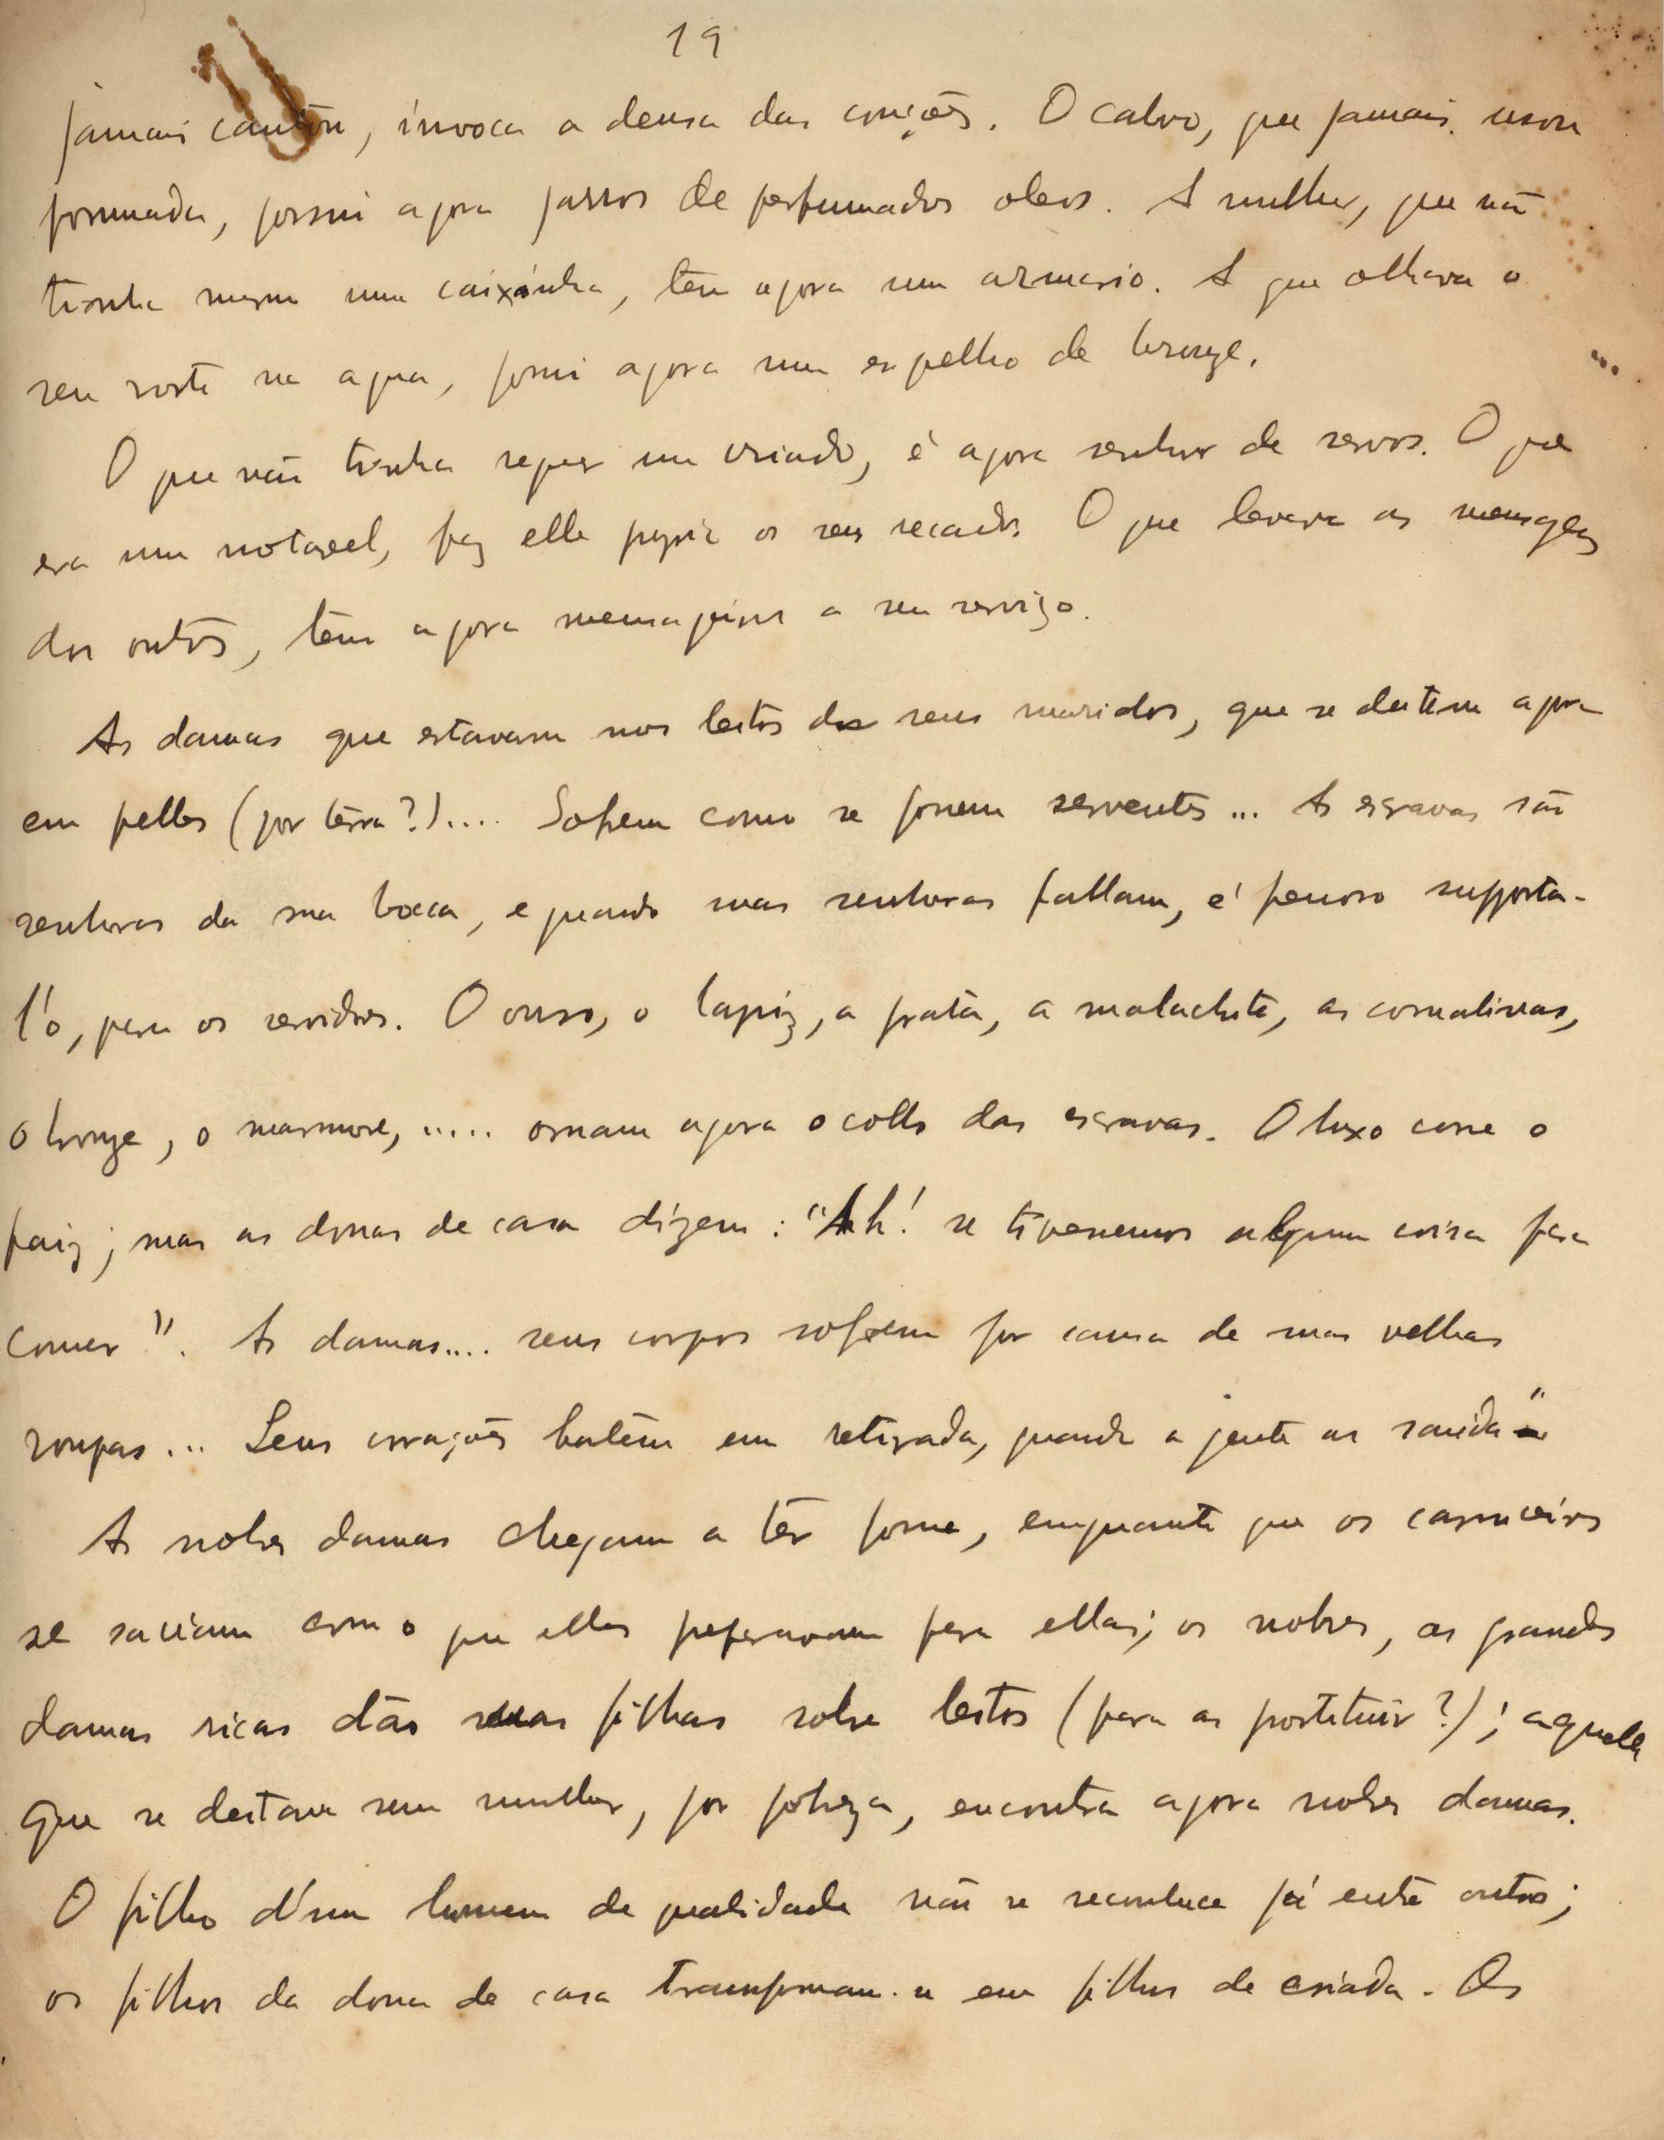 19
jamais cantou, invoca a deusa das canções. O calvo, que jamais usou
pommada, possui agora jarros de perfumados oleos. A mulher, que não
tinha mesmo uma caixinha, tem agora um armario. A que olhava o
seu rosto na agua, possui agora um espelho de bronze.
O que não tinha sequer um criado, é agora senhor de servos. O que
era um notavel, faz elle proprio os seus recados. O que levava as mensagens
dos outros, tem agora mensageiros a seu serviço.
As damas que estavam nos leitos dos seus maridos, que se deitem agora
em pelles (por terra?).... Sofrem como se fossem serventes... As escravas são
senhoras da sua bocca, e quando suas senhoras fallam, é penoso supporta-
l'o, para os servidores. O ouro, o lapiz, a prata, a malachite, as cornalinas,
o bronze, o marmore, ..... ornam agora o collo das escravas. O luxo corre o
paiz; mas as donas de casa dizem: "Ah! se tivessemos alguma coisa para
comer". As damas.... seus corpos sofrem por causa de suas velhas
roupas... Seus corações batem em retirada, quando a gente as saúda"
As nobres damas chegam a ter fome, emquanto que os carniceiros
se saciam com o que elles preparavam para ellas; os nobres, as grandes
damas ricas dão suas filhas sobre leitos (para as prostituir?); aquele
que se deitava sem mulher, por pobreza, encontra agora nobres damas.
O filho d'um homem de qualidade não se reconhece já entre outros;
os filhos da dona de casa transformam-se em filhos de criada. Os